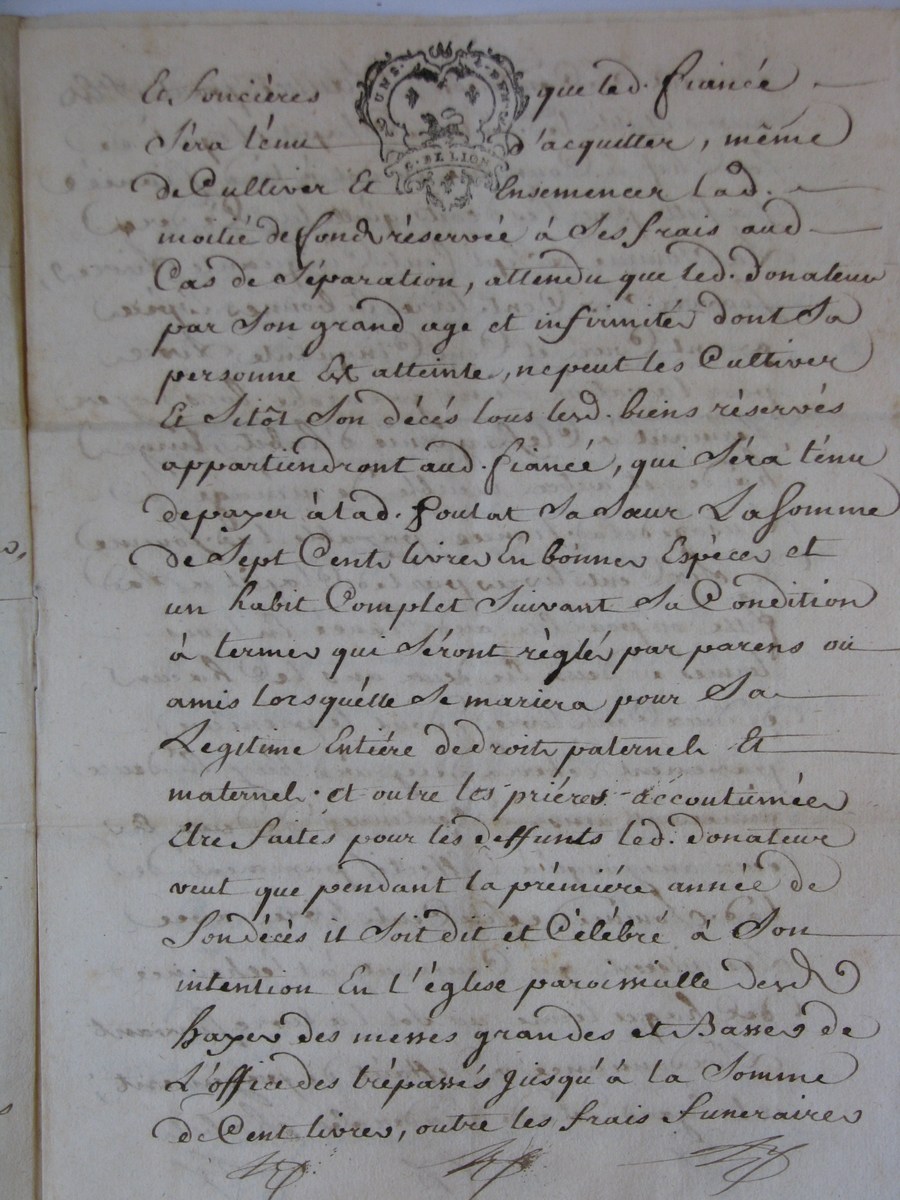 UNS. 4. DEN.
G. DE LION
Et foncières que led. fiancé
Séra ténu d'acquitter, même
de Cultiver Et Ensemencer lad.
moitié de fond réservée à Ses frais aud
Cas de Séparation, attendu que led. donateur
par Son grand age et infirmités dont Sa
personne Est atteinte, ne peut les Cultiver
Et Sitôt Son décés tous lesd. biens réservés
appartiendront aud. fiancé, qui Séra ténu
de payer à lad. foulat Sa Sœur La Somme
de Sept Cent livres En bonnes Espèces et
un habit Complet Suivant Sa Condition
à termes qui Séront règlés par parens ou
amis lorsqu'elle Se mariera pour Sa
Legitime Entiére de droits paternels Et
maternels. et outre les priéres accoutumées
Etre faites pour les deffunts led. donateur
veut que pendant la prémiére année de
Son décès il Soit dit et Célébré à Son
intention En l'église paroissialle desd
hayes des messes grandes et Basses de
L'office des trépassés jusqu'à la Somme
de Cent livres, outre les frais funeraires